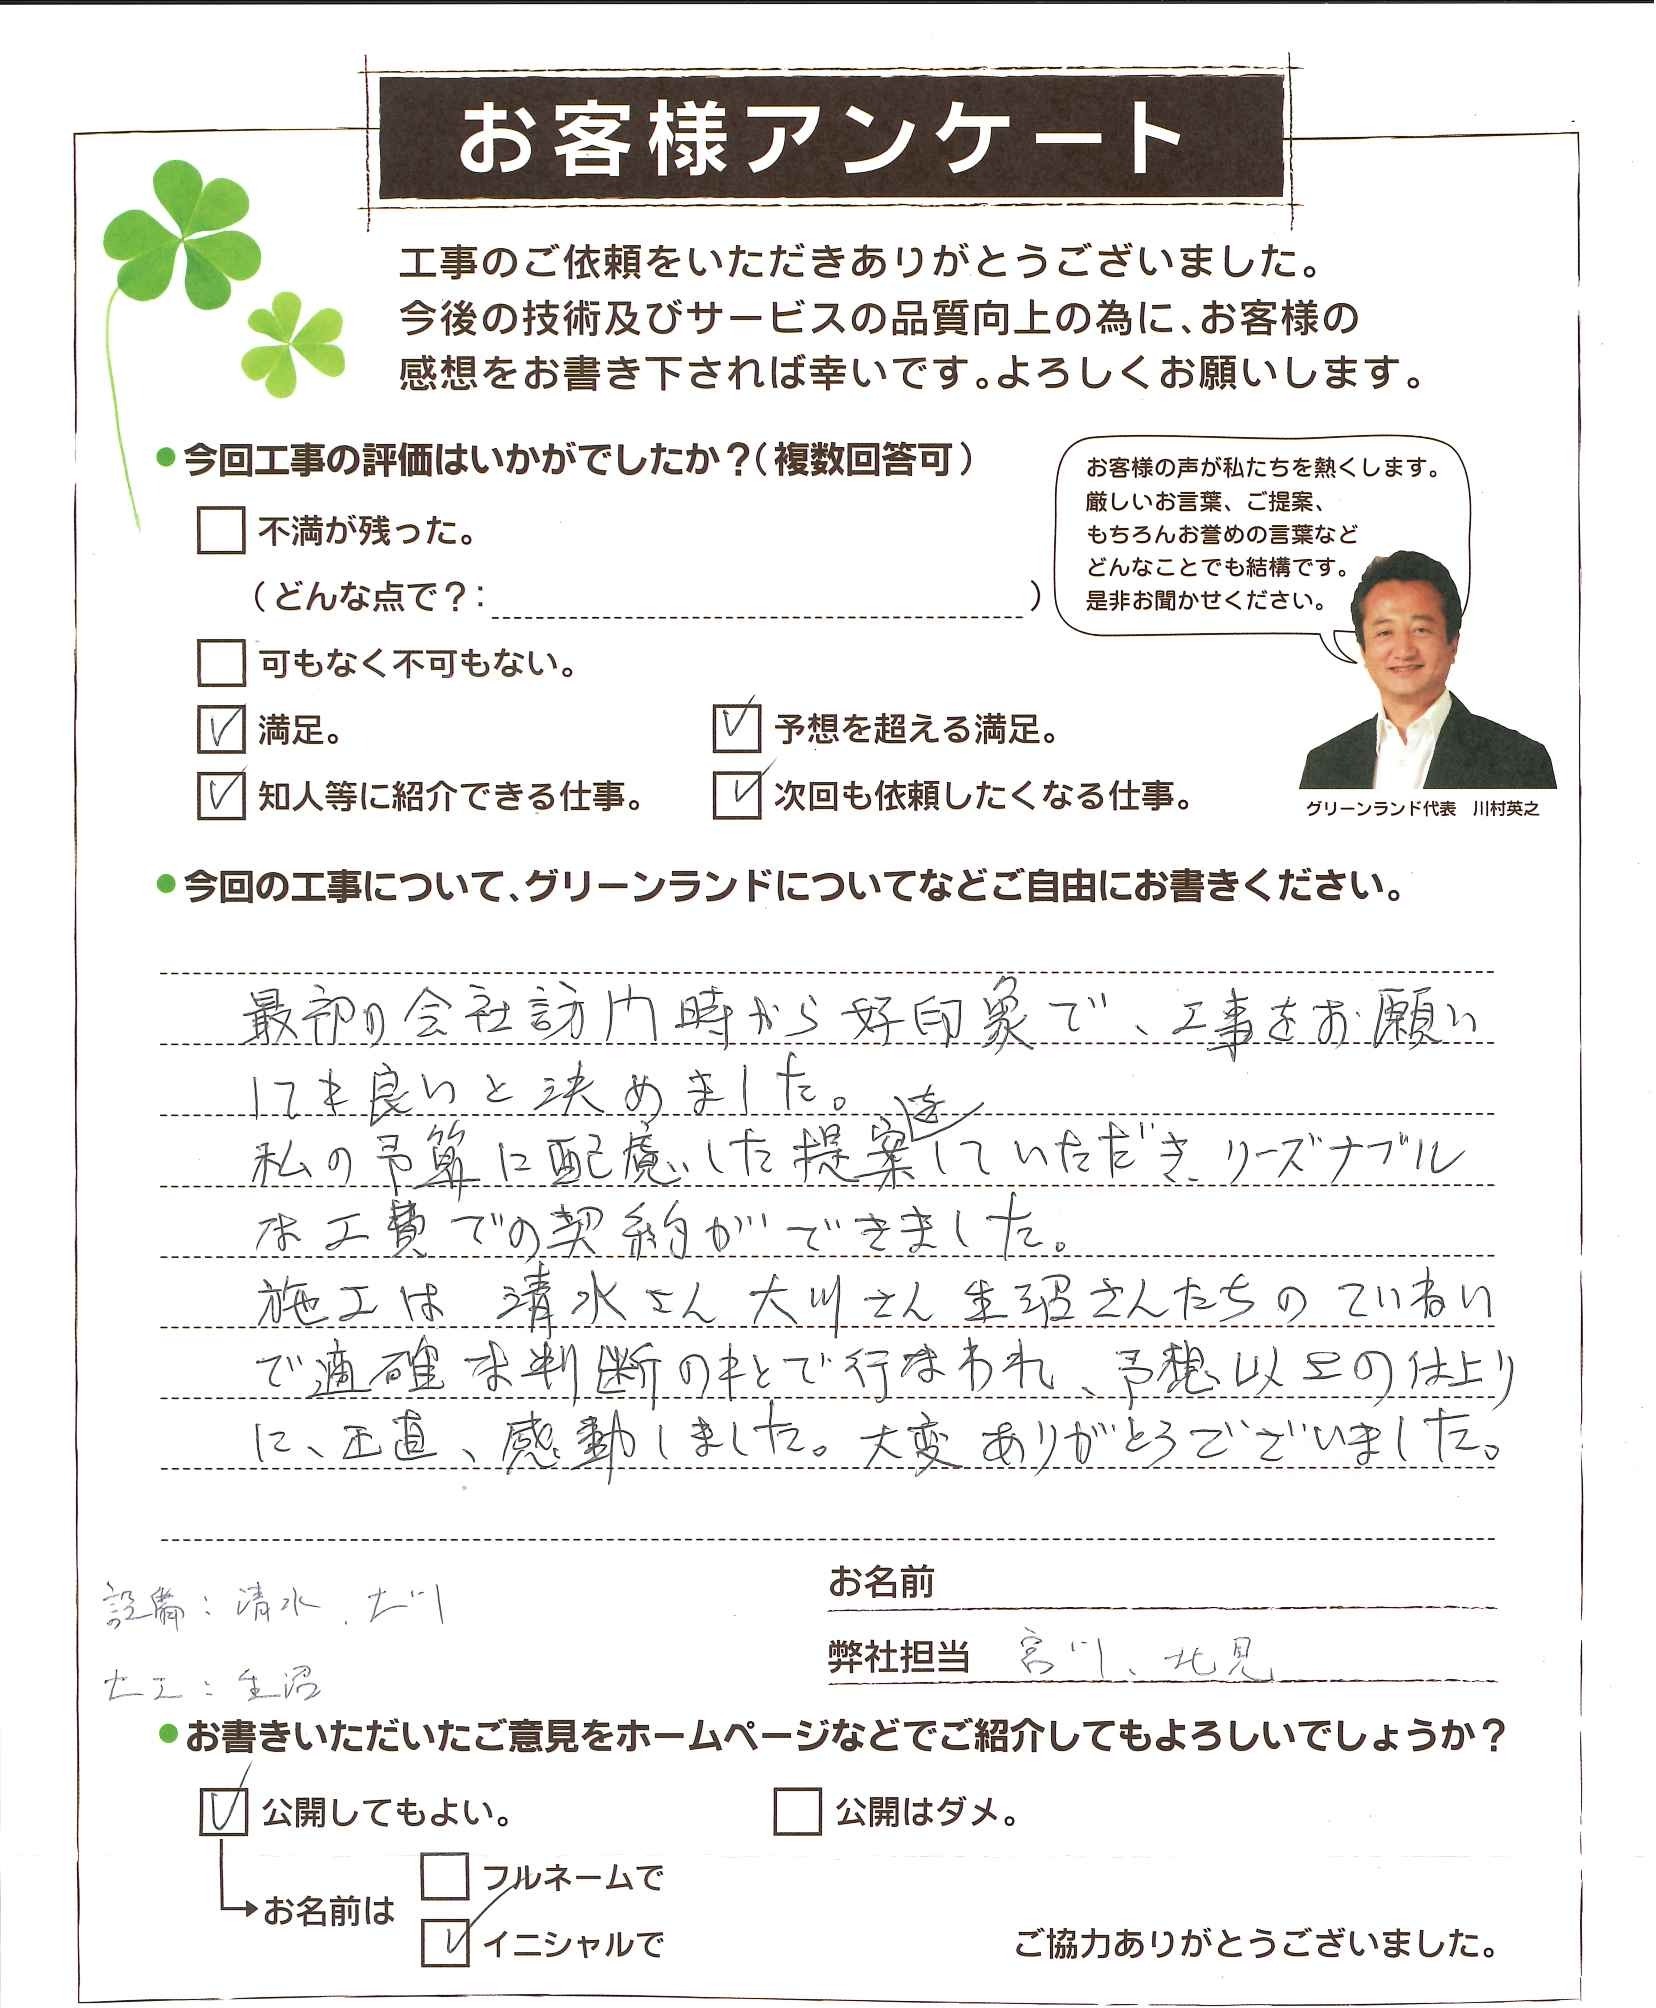 お客様アンケート
工事のご依頼をいただきありがとうございました。
今後の技術及びサービスの品質向上の為に、お客様の
感想をお書き下されば幸いです。よろしくお願いします。
●今回工事の評価はいかがでしたか？（複数回答可）
お客様の声が私たちを熱くします。
厳しいお言葉、ご提案、
もちろんお誉めの言葉など
どんなことでも結構です。
是非お聞かせください。
不満が残った。
（どんな点で？：　　　）
可もなく不可もない。
満足。
予想を超える満足。
知人等に紹介できる仕事。
次回も依頼したくなる仕事。
グリーンランド代表　川村英之
●今回の工事について、グリーンランドについてなどご自由にお書きください。
最初の会社訪門時から好印象で、工事をお願い
しても良いと決めました。
私の予算に配慮した提案をしていただき、リーズナブル
な工費での契約ができました。
施工は 清水さん 大川さん 生沼さんたちのていねい
で適確な判断のもとで行なわれ、予想以上の仕上り
に、正直、感動しました。大変ありがとうございました。
お名前
設備：清水、大川
弊社担当　宮川、北見
大工：生沼
●お書きいただいたご意見をホームページなどでご紹介してもよろしいでしょうか？
公開してもよい。
公開はダメ。
フルネームで
お名前は
イニシャルで
ご協力ありがとうございました。